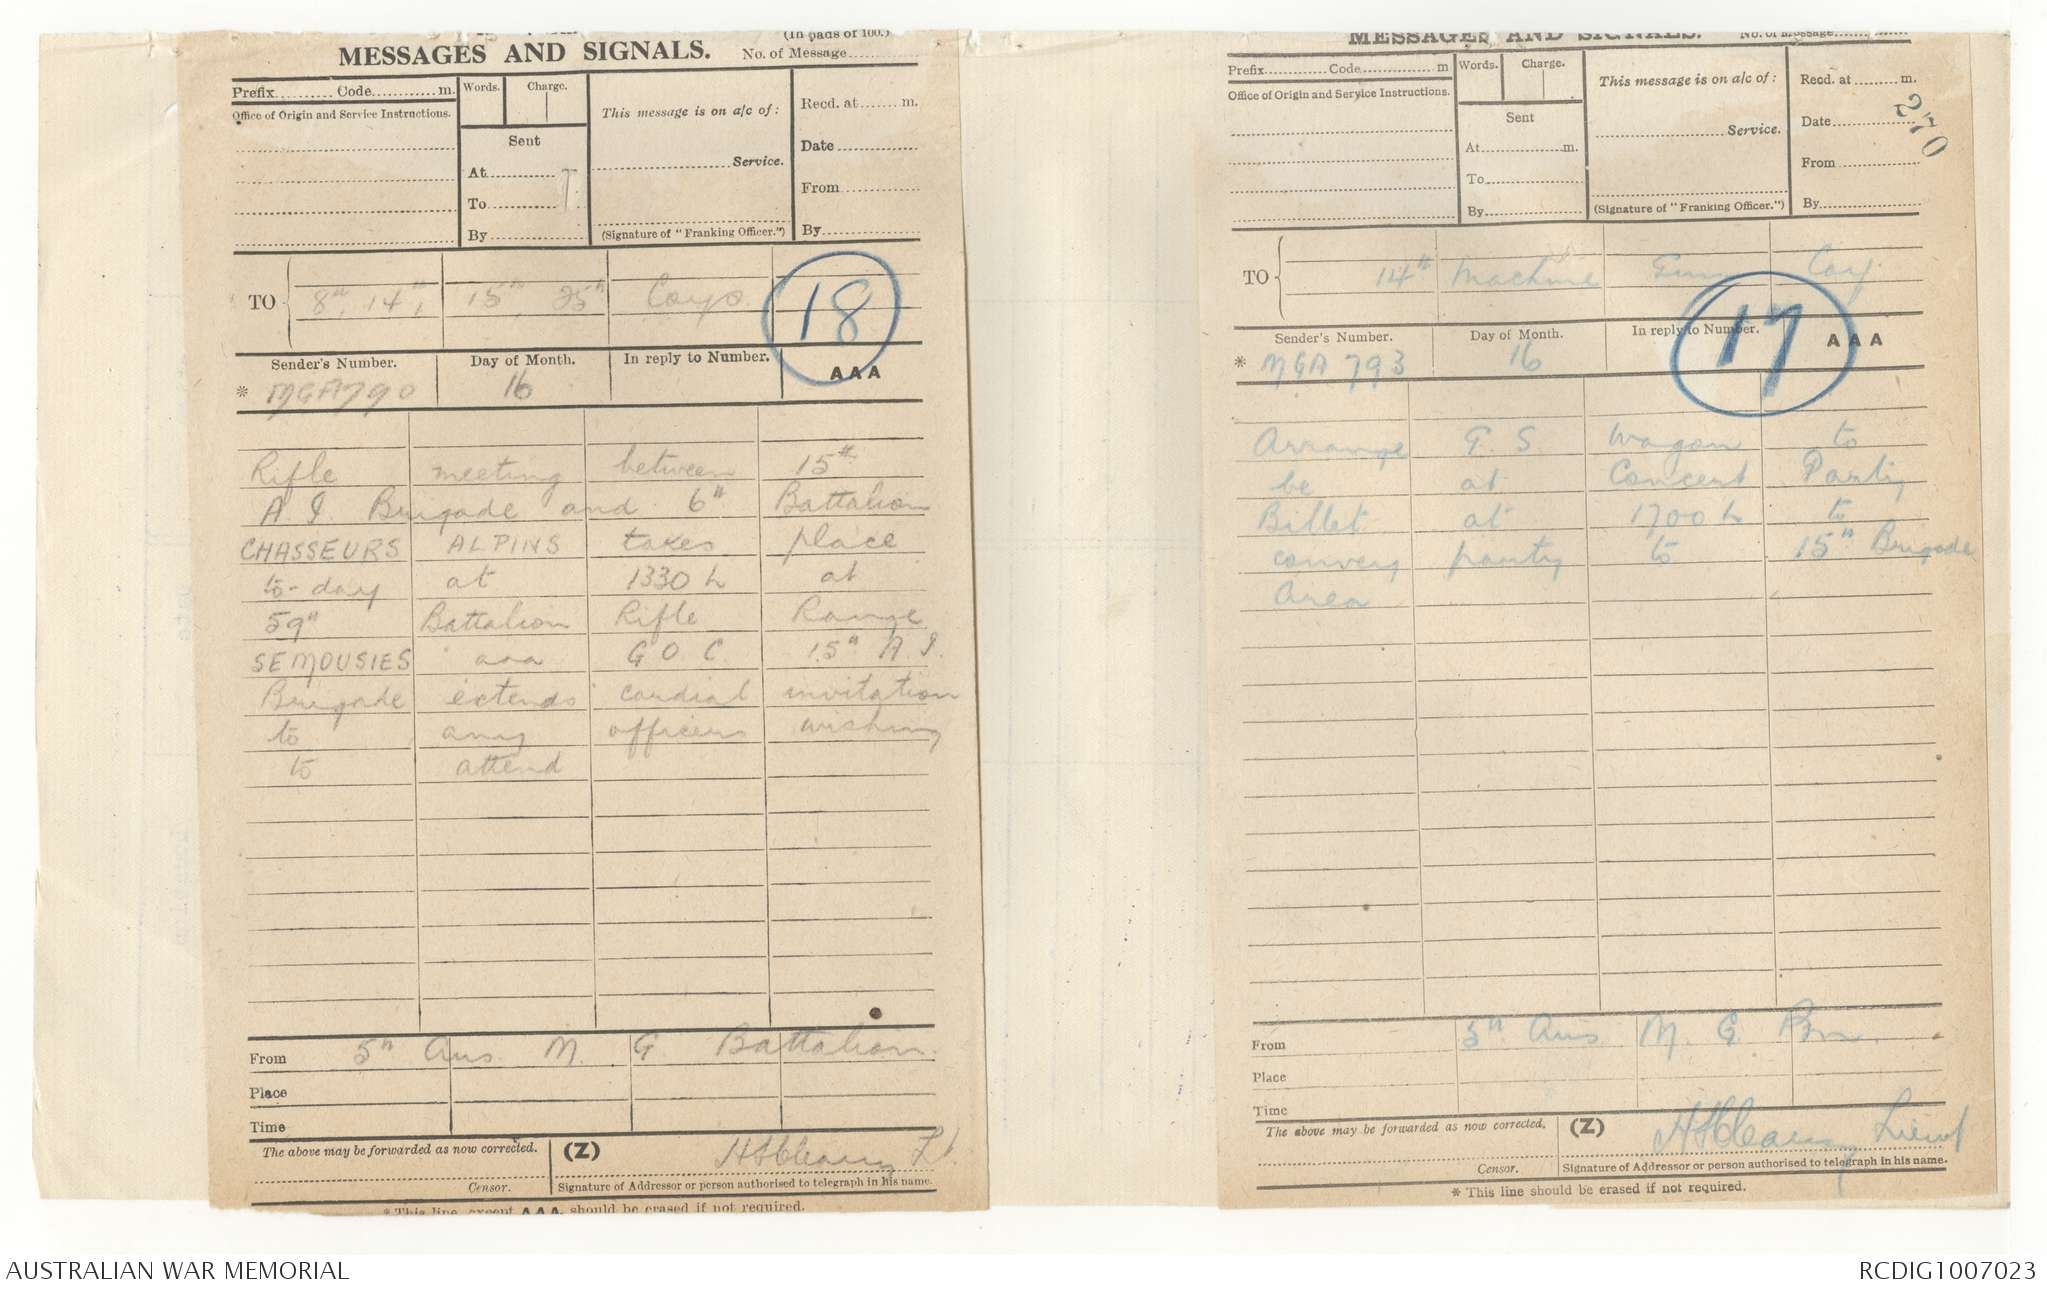 (In pads of 100.)
MESSAGES AND SIGNALS.
No. of Message..........
Prefix.......... Code............ m.
Words.
Charge.
This message is on a/c of :
Recd. at ....... m.
Office of Origin and Service Instructions.
Sent
Date
At
Service.
To
From
By
(Signature of "Franking Officer.")
By
TO
8th, 14th, 15th, 25th Coys.
18
Sender's Number.
Day of Month.
In reply to Number.
AAA
* MGA790
16
Rifle meeting between 15th
A I Brigade and 6th Battalion
CHASSEURS ALPINS takes place
to-day at 1330 h at
59th Battalion Rifle Range
SEMOUSIES aaa G O C 15th A.I.
Brigade extends cordial invitation
to any officers wishing
to attend
From 5th Aus. M. G Battalion.
Place
Time
The above may be forwarded as now corrected.
(Z)
Lt.
Censor.
Signature of Addressor or person authorised to telegraph in his name.
* This line, except AAA, should be erased if not required.
MESSAGES AND SIGNALS.
No. of Message
Prefix............ Code............... m
Words.
Charge.
This message is on a/c of :
Recd. at ......... m.
Office of Origin and Service Instructions.
270
Sent
Date
Service.
At..................m.
From
To
By
(Signature of "Franking Officer.")
By
TO
14th Machine Gun Coy.
17
Sender's Number.
Day of Month.
In reply to Number.
AAA
* MGA 793
16
Arrange G. S wagon to
be at Concert Party
Billet at 1700 h to
convey party to 15th Brigade
Area
From 5th Aus M. G. Bn.
Place
Time
The above may be forwarded as now corrected.
(Z)
Lieut
Censor.
Signature of Addressor or person authorised to telegraph in his name.
* This line should be erased if not required.
AUSTRALIAN WAR MEMORIAL
RCDIG1007023